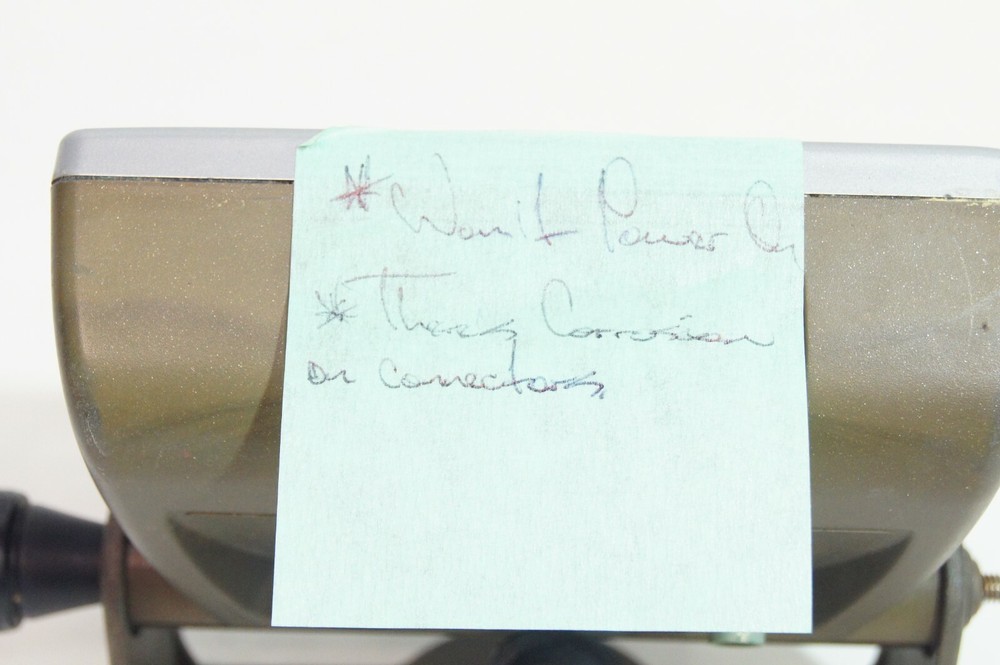 * Won't Power On
* There's Corrosion
on connectors.